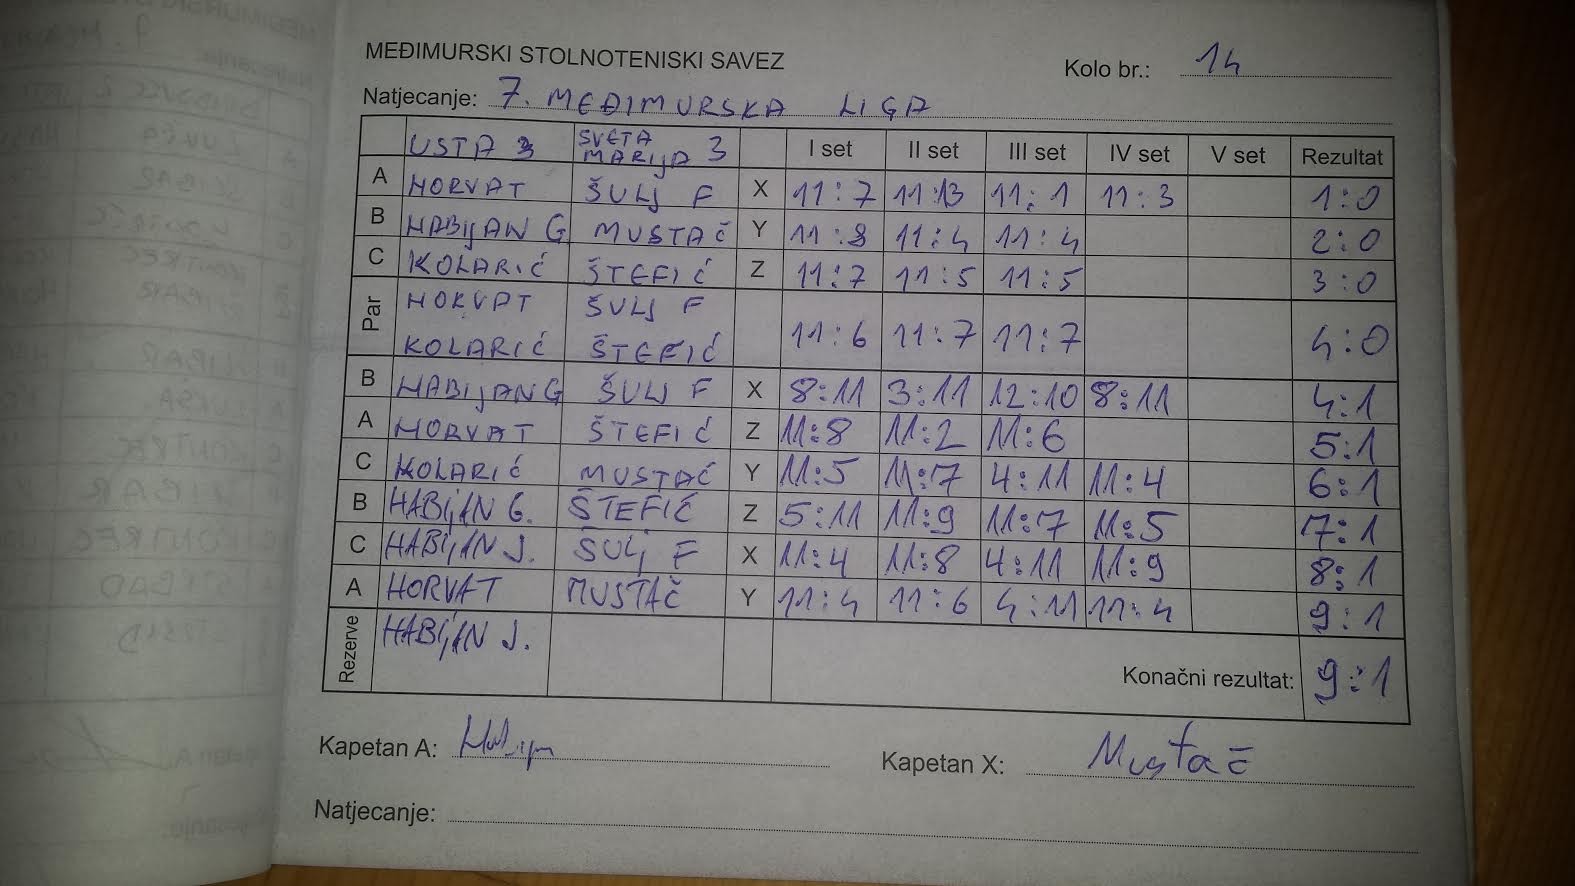 MEĐIMURSKI STOLNOTENISKI SAVEZ
Kolo br.: 14
Natjecanje: 7. MEĐIMURSKA LIGA
USTA 3 SVETA MARIJA 3 I set II set III set IV set V set Rezultat
A HORVAT ŠULJ F X 11:7 11:13 11:1 11:3 1:0
B HABIJAN G MUSTAČ Y 11:8 11:4 11:4 2:0
C KOLARIĆ ŠTEFIĆ Z 11:7 11:5 11:5 3:0
Par HORVAT ŠULJ F
KOLARIĆ ŠTEFIĆ 11:6 11:7 11:7 4:0
B HABIJAN G ŠULJ F X 8:11 3:11 12:10 8:11 4:1
A HORVAT ŠTEFIĆ Z 11:8 11:2 11:6 5:1
C KOLARIĆ MUSTAĆ Y 11:5 11:7 4:11 11:4 6:1
B HABIJAN G. ŠTEFIĆ Z 5:11 11:9 11:7 11:5 7:1
C HABIJAN J. ŠULJ F X 11:4 11:8 4:11 11:9 8:1
A HORVAT MUSTAČ Y 11:4 11:6 4:11 11:4 9:1
Rezerve HABIJAN J.
Konačni rezultat: 9:1
Kapetan A:
Kapetan X: Mustač
Natjecanje: